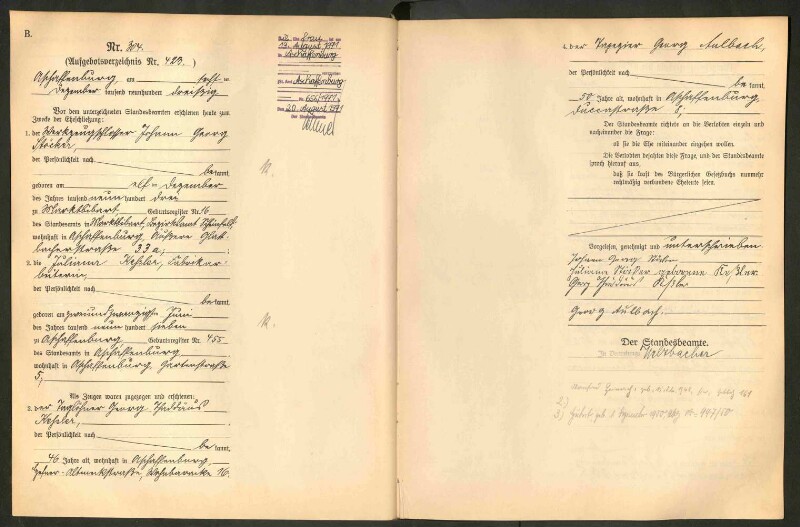 B.
Nr. 304.
(Aufgebotsverzeichnis Nr. 423.)
Aschaffenburg, am sechsten
Dezember tausend neunhundert dreißig
Vor dem unterzeichneten Standesbeamten erschienen heute zum
Zwecke der Eheschließung:
1. der Werkzeugschlosser Johann Georg
Stöcker,
der Persönlichkeit nach
bekannt,
geboren am elften Dezember
des Jahres tausend neunhundert drei
zu Marktbibart, Geburtsregister Nr. 16
des Standesamts in Marktbibart, Bezirksamt Scheinfeld,
wohnhaft in Aschaffenburg, Äußere Glatt-
bacherstraße 33a;
2. die Juliana Keßler,
der Persönlichkeit nach
bekannt,
geboren am zweiundzwanzigsten Juni
des Jahres tausend neunhundert sieben
zu Aschaffenburg, Geburtsregister Nr. 455
des Standesamts in Aschaffenburg
wohnhaft in Aschaffenburg, Gartenstraße
5;
Als Zeugen waren zugezogen und erschienen:
3. der Taglöhner Georg Thaddäus
Keßler,
der Persönlichkeit nach
bekannt,
46 Jahre alt, wohnhaft in Aschaffenburg,
Wohnbaracke 16.
19. August 1971
Aschaffenburg
Aschaffenburg
Nr. 656/1971
Den 20. August 1971
Der Standesbeamte
4. der Tapezier Georg Aulbach,
der Persönlichkeit nach
bekannt,
50 Jahre alt, wohnhaft in Aschaffenburg,
Duccastraße 5;
Der Standesbeamte richtete an die Verlobten einzeln und
nacheinander die Frage:
ob sie die Ehe miteinander eingehen wollen.
Die Verlobten bejahten diese Frage, und der Standesbeamte
sprach hierauf aus,
daß sie kraft des Bürgerlichen Gesetzbuchs nunmehr
rechtmäßig verbundene Eheleute seien.
Vorgelesen, genehmigt und unterschrieben
Johann Georg Stöcker
Juliana Stöcker geborene Keßler
Georg Thaddäus Keßler
Georg Aulbach
Der Standesbeamte.
In Vertretung:
2)
3)